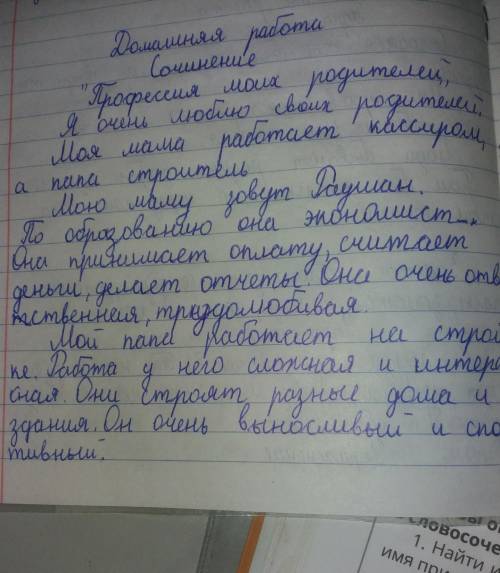 Домашняя работа
Сочинение
"Профессия моих родителей,
Я очень люблю своих родителей.
Моя мама работает кассиром,
а папа строитель
Мою маму зовут Раушан.
По образованию она экономист...
Она принимает оплату, считает
деньги, делает отчеты. Она очень отве
тственная, трудолюбивая.
Мой папа работает на строй
ке. Работа у него сложная и интере
сная. Они строят разные дома и
здания. Он очень выносливый и спо
тивный.
словосоче
1. Найти и
имя при